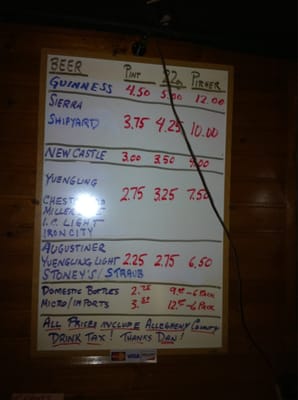 BEER PINT 22oz PITCHER
GUINNESS 4.50 5.00 12.00
SIERRA
SHIPYARD 3.75 4.25 10.00
NEWCASTLE 3.00 3.50 9.00
YUENGLING
2.75 3.25 7.50
MILLER
I.C. LIGHT
IRON CITY
AUGUSTINER
YUENGLING LIGHT 2.25 2.75 6.50
STONEY'S / STRAUB
DOMESTIC BOTTLES 2.75 6 PACK
MICRO/IMPORTS 6 PACK
ALL PRISES INCLUDE ALLEGHENY COUNTY
DRINK TAX! THANKS DAN!
VISA